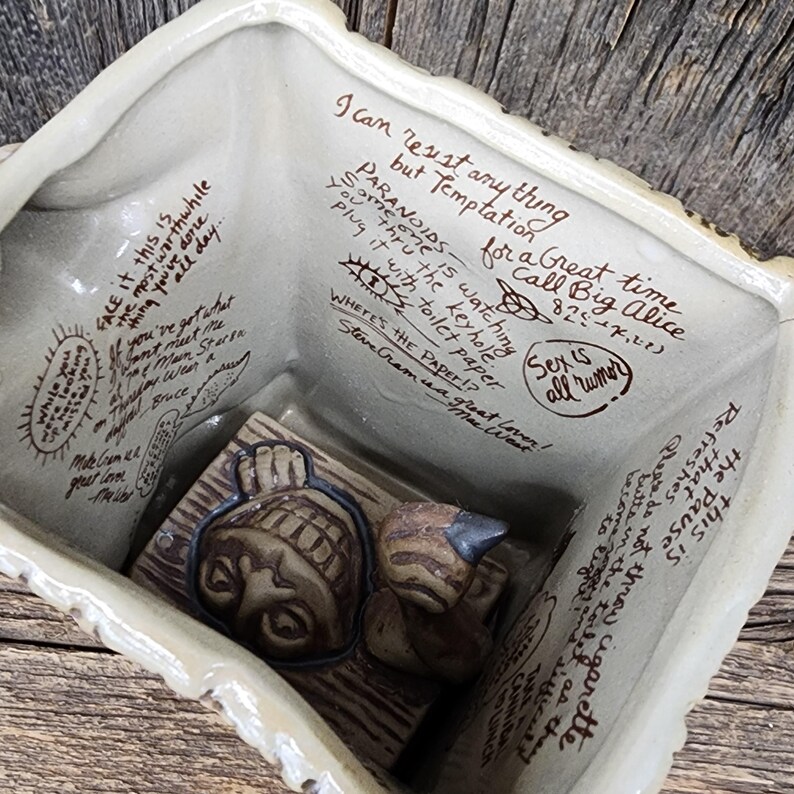 FACE IT THIS IS
the most worthwhile
thing you've done
all day...
While you
were looking
missed you
If you've got what
I want meet me
Main St at 8x
on Thursday. Wear a
daffodil.. Bruce
Mike Cram is a
great lover
Mae West
I can resist anything
but Temptation
PARANOIDS-
Someone is watching
you thru the keyhole
plug it with toilet paper
WHERE'S THE PAPER!?
Steve Cram is a great lover!
Mae West
for a Great time
Call Big Alice
Sex is
all rumor
this is
the pause
that
Refreshes
Please do not throw cigarette
butts in the toilet, as they
become difficult
to light!
TAKE A
CANNIBAL
TO LUNCH